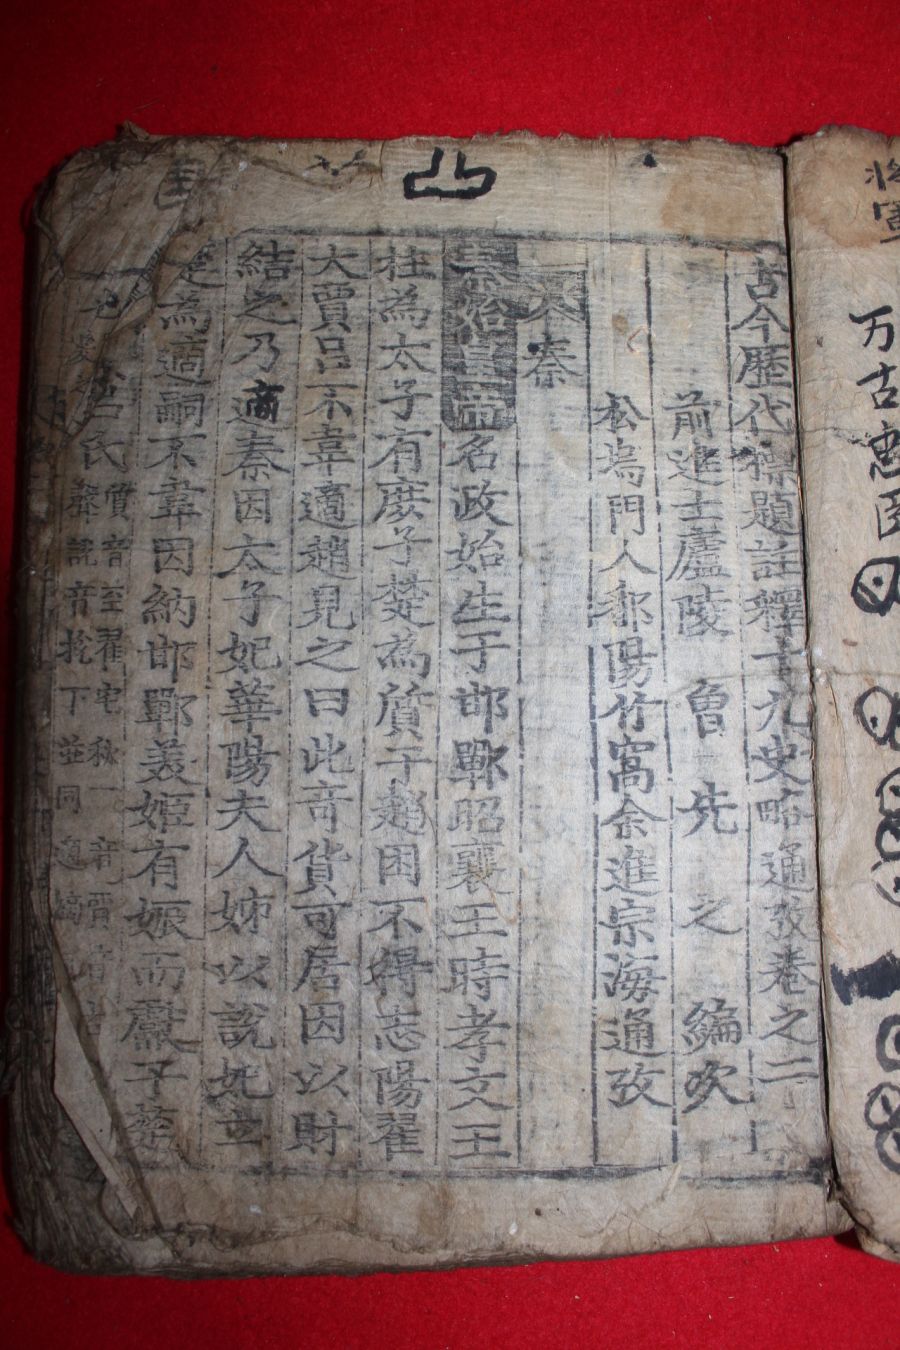 將軍
万古
古今歷代標題註釋十九史略通攷卷之二
前進士廬陵 曾 先 之 編次
松塢門人鄱陽竹窩余進宗海通攷
秦
秦始皇帝名政始生于邯鄲昭襄王時孝文王
柱為太子有庶子楚為質于趙困不得志陽翟
大賈呂不韋適趙見之曰此奇貨可居因以財
結之乃適秦因太子妃華陽夫人姊以說妃立
楚為適嗣不韋因納邯鄲美姬有娠而獻于楚
呂氏
質音至翟宅秋二音賈音古
說音稅下並同適音